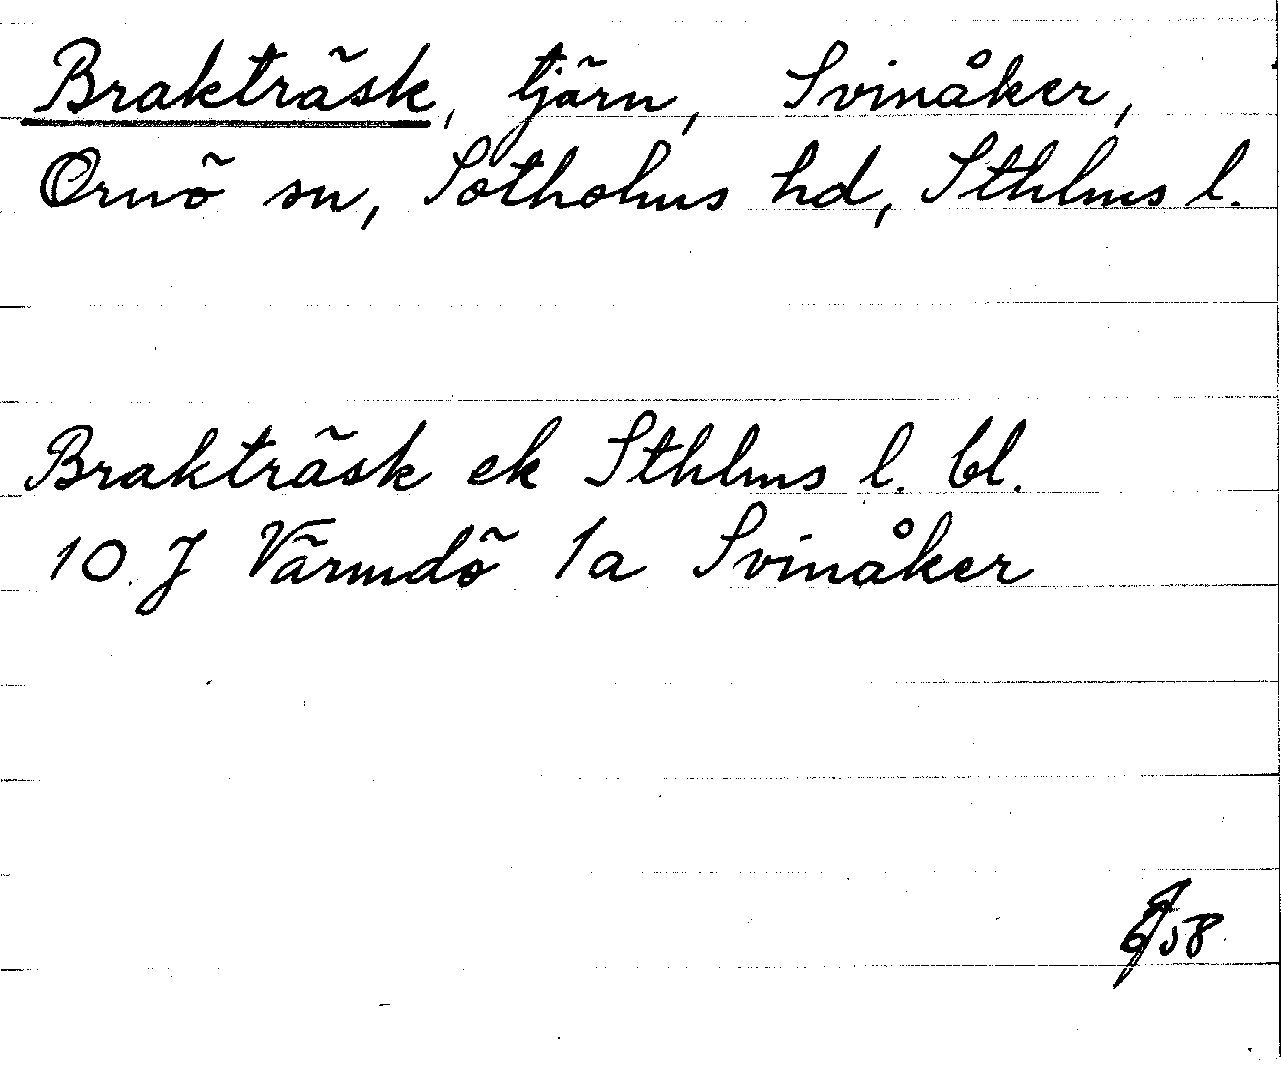 Brakträsk, tjärn, Svinåker,
Ornö sn, Sotholms hd, Sthlms l.
Brakträsk ek Sthlms l. bl.
10 J Värmdö 1a Svinåker
58